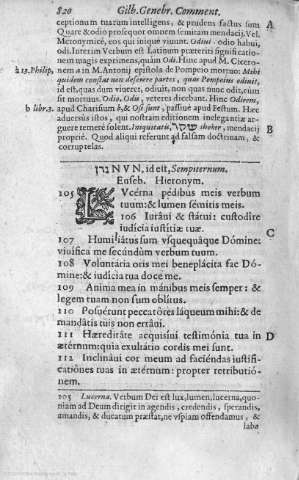 820 Gilb. Genebr. Comment.
ceptionum tuarum intelligens, & prudens factus sum A
Quare & odio prosequor omnem semitam mendacij. Vel
Hieronymicè, eos qui iniquè viuunt. Odiui odio habui,
odi. Interim Verbum est Latinum præteriti significatio-
nem magis exprimens, quàm Odi. Hinc apud M. Cicero-
a 13. Philip. nem a in M. Antonij epistola de Pompeio mortuo: Mihi
quidem constat nec deserere partes, quas Pompeius odiuit,
id est, quas dum viueret, odiuit, non quas nunc odit, cùm
sit mortuus. Odio, Odiu, veteres dicebant. Hinc Odientes,
b libr. 3. apud Charisium b, & Osi sunt, passiuè apud Festum. Hæc
aduersùs istos, qui nostram editionem inelegantiæ ar-
guere temerè solent. Iniquitatis, שקר, sheker, mendacij B
propriè. Quod aliqui referunt ad falsam doctrinam, &
corruptelas.
נון NVN, id est, Sempiternum.
Euseb. Hieronym.
105 LVcérna pédibus meis verbum
tuum: & lumen sémitis meis.
106 Iuráui & státui: custodire
iudicia iustitiæ tuæ.
C
107 Humiliátus sum vsquequáque Dómine:
viuifica me secúndùm verbum tuum.
108 Voluntária oris mei beneplácita fac Dó-
mine: & iudicia tua doce me.
109 Anima mea in mánibus meis semper: &
legem tuam non sum oblitus.
110 Posuérunt peccatóres láqueum mihi: & de
mandátis tuis non erráui.
111 Hæreditáte acquisiui testimónia tua in D
ætérnum: quia exultátio cordis mei sunt.
112 Inclináui cor meum ad faciéndas iustifi-
catiónes tuas in ætérnum: propter retributió-
nem.
105 Lucerna. Verbum Dei est lux, lumen, lucerna, quo-
niam ad Deum dirigit in agendis, credendis, sperandis,
amandis, & ducatum præstat, ne vspiam offendamus, &
laba